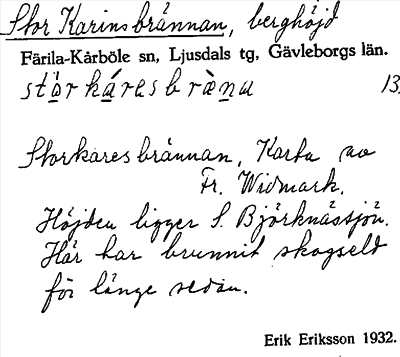 Stor Karinsbrännan, berghöjd
Färila-Kårböle sn, Ljusdals tg, Gävleborgs län.
13
Storkaresbrännan, Karta av
Fr. Widmark.
Höjden ligger S. Björknässjön.
Här har brunnit skogseld
för länge sedan.
Erik Eriksson 1932.